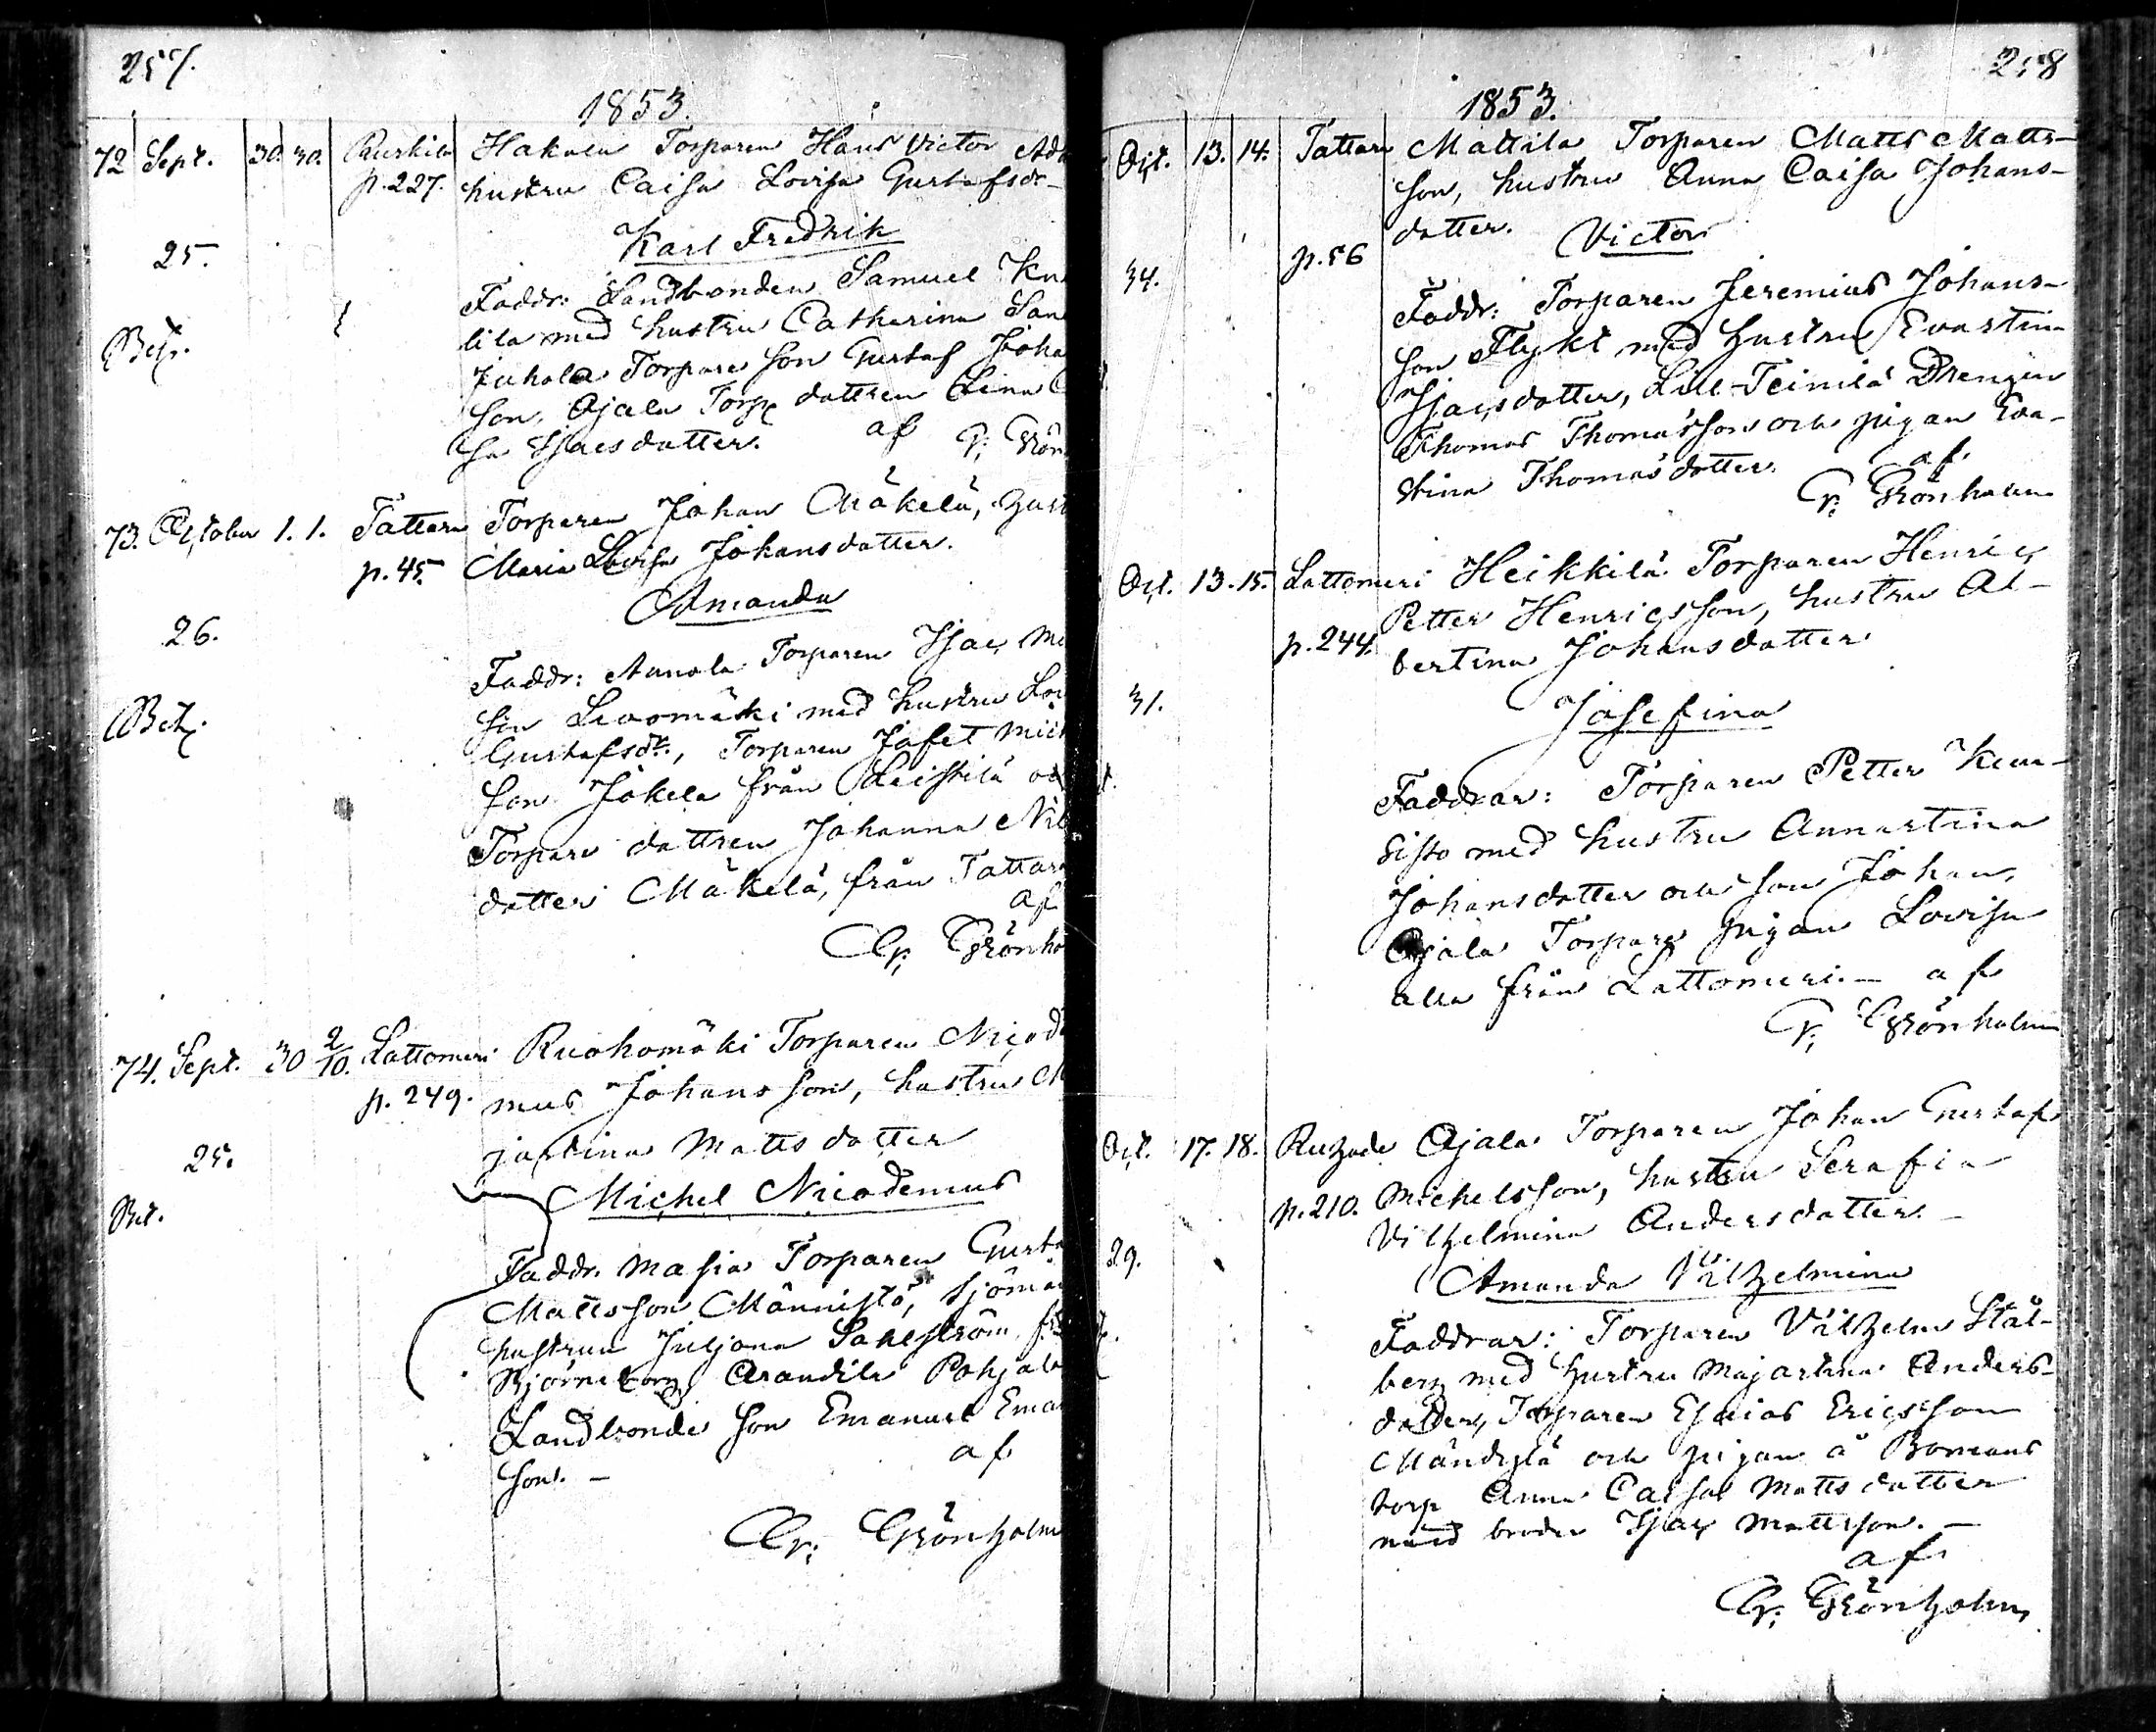 257.
1853.
72 Sept. 30. 30. Ruskila Hakala Torparen Hans Victor
p. 227. hustru Caisa Lovisa Gustafsdr
Karl Fredrik
25.
Faddr: Landbonden Samuel
lila med hustru Catharina
Betg.
Juhola Torpare son Gustaf Joha
son, Ojala Torp dottren Lina
sa Isacsdotter. af
73. October 1. 1. Tattara Torparen Johan Mäkelä,
p. 45. Maria Lovisa Johansdotter.
Amanda
26.
Faddr: Torparen Isac
son med hustru
Betg.
Gustafsdr., Torparen Jafet Mich
son Jokela från Leistilä
Torpare dottren Johanna
dotter Mäkelä, från Tattara
af
Gr: Grönho
74. Sept. 30 2/10. Lattomeri Ruohomäki Torparen Nicod
p. 249. mus Johansson, hustru M
jastina Mattsdotter
25.
Michel Nicodemus
Bet.
Faddr. Masia Torparen Gusta
Mattsson Männistö, Sjöma
hustrun Juljana Sahlström
Björneborg, Pohjala
Landbonde son Emanuel Eman
son. – af
Gr: Grönholm
258
1853.
Oct. 13. 14. Tattara Mattila Torparen Matts Matts-
son, hustru Anna Caisa Johans-
dotter.
p. 56 Victor
34.
Faddr: Torparen Jeremias Johans-
son Flykt med hustru Evastina
Isacsdotter, Lill-Teinilä Drengen
Thomas Thomasson och pigan Eva-
stina Thomasdotter. af
Gr: Grönholm
Oct. 13. 15. Lattomeri Heikkilä Torparen Henric
Petter Henricsson, hustru Al-
p. 244. bertina Johansdotter
31.
Josefina
Faddrar: Torparen Petter Keur-
sisto med hustru Annastina
Johansdotter och son Johan,
Ojala Torpare pigan Lovisa
alla från Lattomeri. – af
Gr: Grönholm
Oct. 17. 18. Ruhade Ojala Torparen Johan Gustaf
p. 210. Michelsson, hustru Serafia
Vilhelmina Andersdotter. –
29.
Amanda Vilhelmina
Faddrar: Torparen Vilhelm Stål-
berg med hustru Majastina Anders-
dotter, Torparen Esaias Ericsson
och pigan å Bomans
torp Anna Caisa Mattsdotter
med broder Isac Mattsson. –
af
Gr: Grönholm